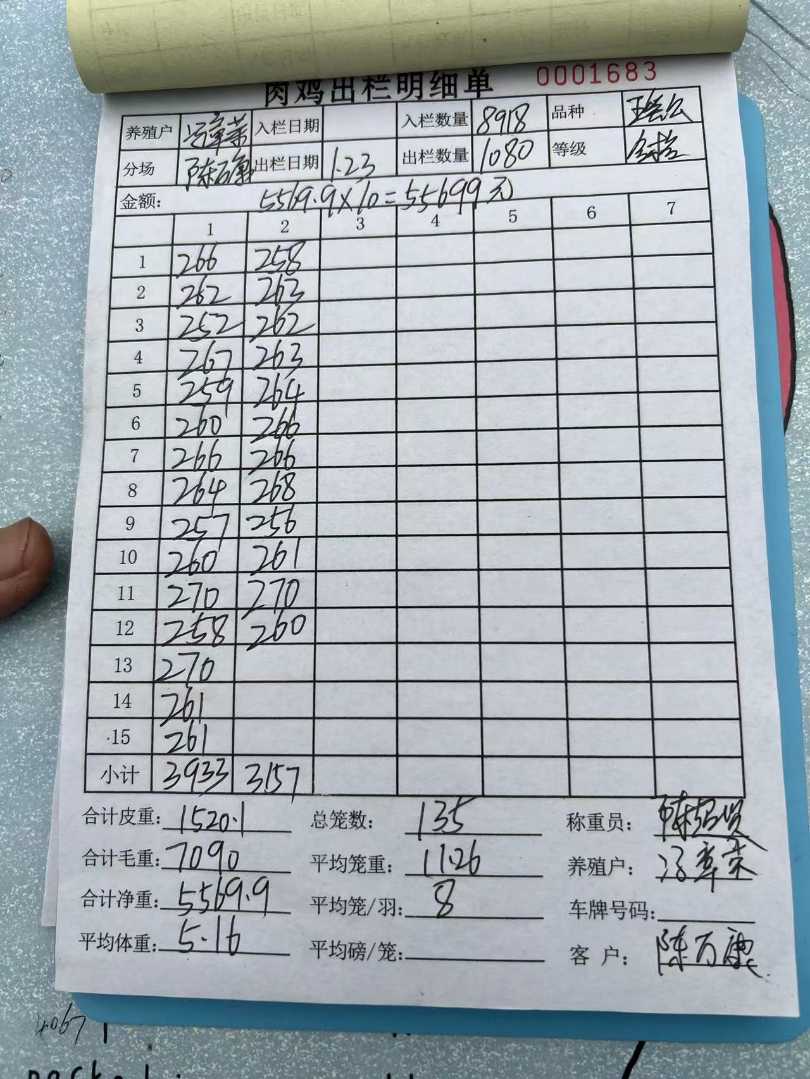 肉鸡出栏明细单 0001683
养殖户 入栏日期 入栏数量 8918 品种
分场 出栏日期 1.23 出栏数量 1080 等级
金额: 5569.9×10=55699元
1 2 3 4 5 6 7
1 266 258
2 262 263
3 252 262
4 267 263
5 259 264
6 260 266
7 266 266
8 264 268
9 257 256
10 260 261
11 270 270
12 258 260
13 270
14 261
15 261
小计 3933 3157
合计皮重: 1520.1 总笼数: 135 称重员:
合计毛重: 7090 平均笼重: 11.26 养殖户:
合计净重: 5569.9 平均笼/羽: 8 车牌号码:
平均体重: 5.16 平均磅/笼: 客 户:
4067